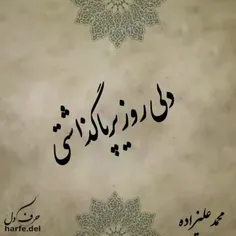 دلی روزیر پا گذاشتی
محمد علیزاده
حرف دل
harfe.del